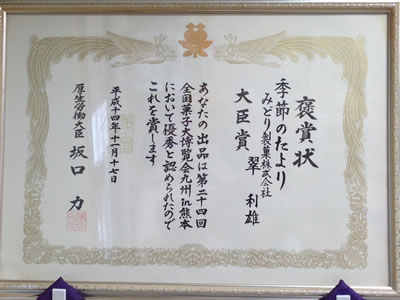 褒賞状
季節のたより
みどり製菓株式会社
翠 利雄
大臣賞
あなたの出品は第二十四回
全国菓子大博覧会九州in熊本
において優秀と認められたので
これを賞します
平成十四年十一月十七日
厚生労働大臣 坂口 力